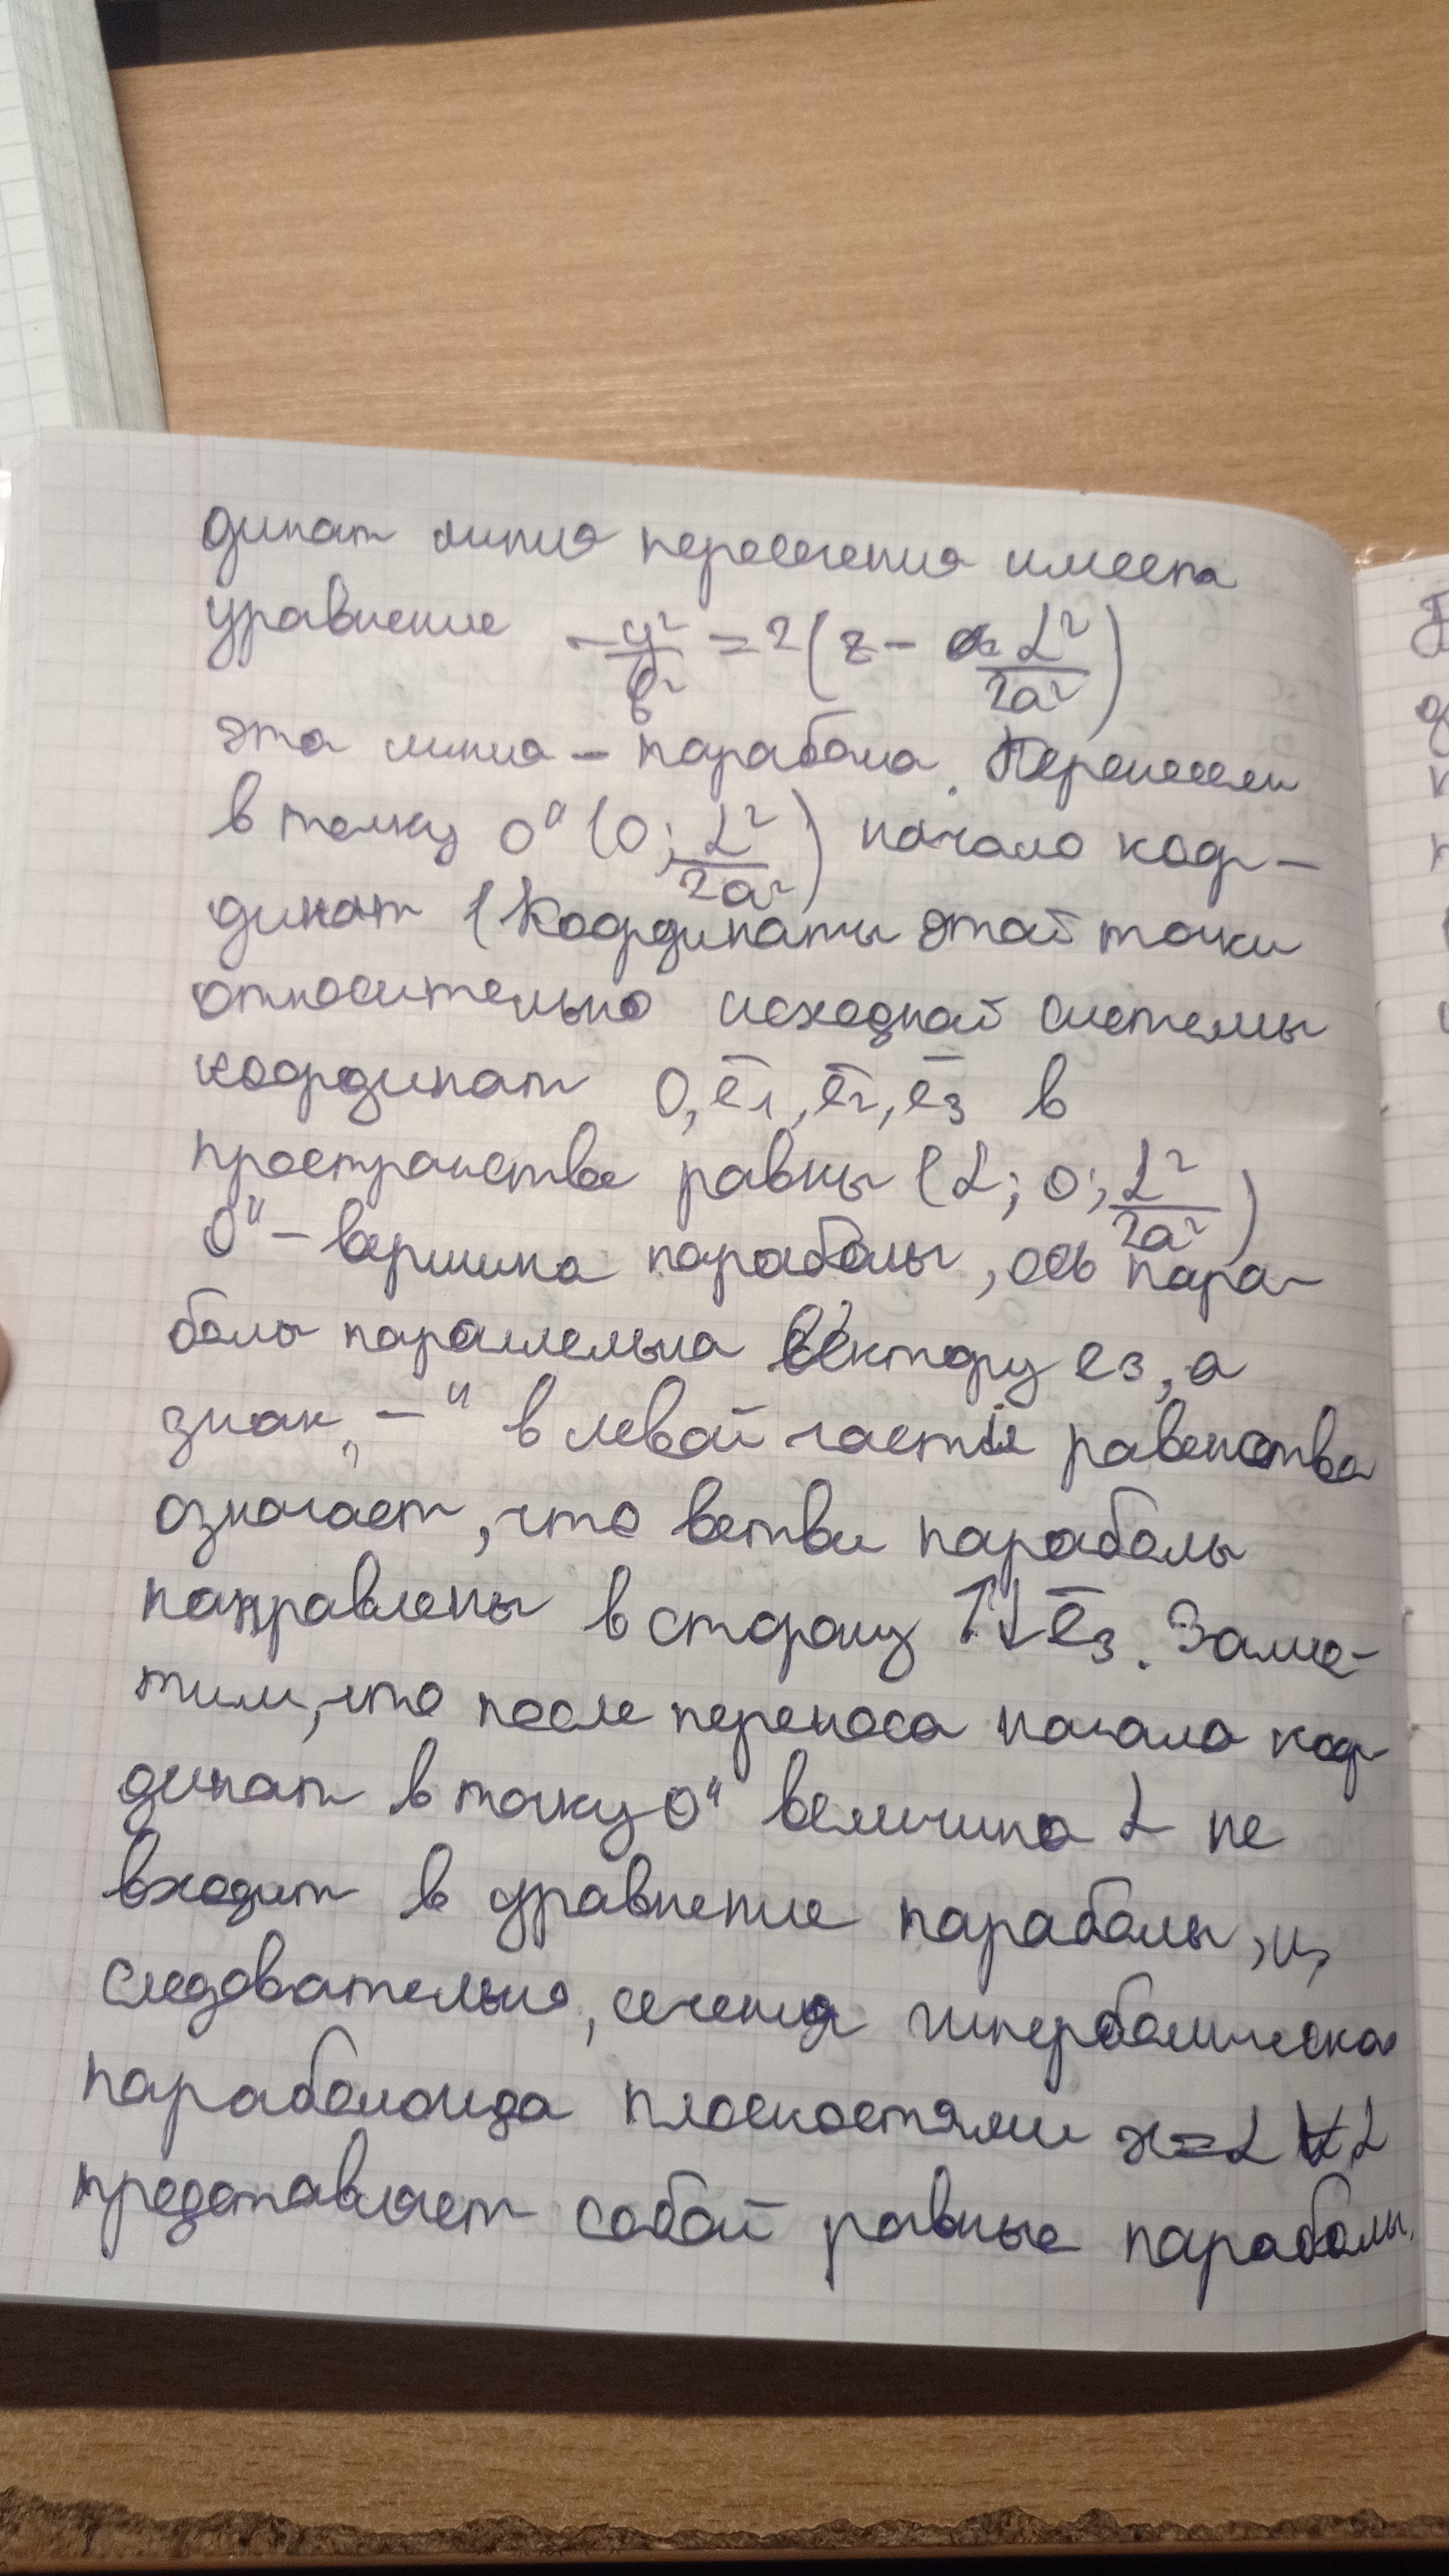 динат линия пересечения имеет
уравнение -y²/b² = 2(z - α²/2a²)
эта линия - парабола. Перенесем
в точку O"(0; α²/2a²) начало коор-
динат (Координаты этой точки
относительно исходной системы
координат O, ē₁, ē₂, ē₃ в
пространстве равны (α; 0; α²/2a²)
O" - вершина параболы, ось пара-
болы параллельна вектору e₃, а
знак „-" в левой части равенства
означает, что ветви параболы
направлены в сторону ↑↓ ē₃. Заме-
тим, что после переноса начала коор
динат в точку O" величина α не
входит в уравнение параболы, и,
следовательно, сечения гиперболическо
параболоида плоскостями x=α ∀α
представляет собой равные параболы.